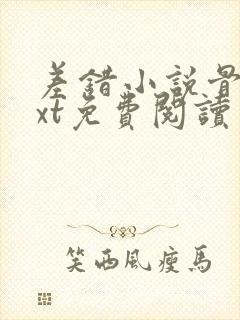 差錯小説最
xt免費閱讀
笑西風瘦馬